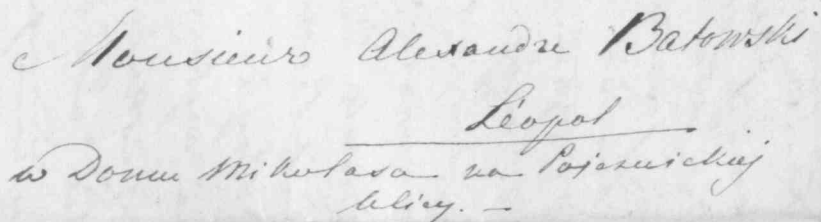 Monsieur Alexandre Batowski
Léopol
w Domu Mikolasa na Pojezuickiej
Ulicy. —